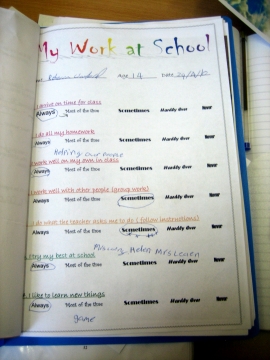 My Work at School
age 14 Date 24/4/12
I arrive on time for class
Always Most of the time Sometimes Hardly Ever Never
I do all my homework
Always Most of the time Sometimes Hardly Ever Never
I work well on my own in class
Always Most of the time Sometimes Hardly Ever Never
I work well with other people (group work)
Always Most of the time Sometimes Hardly Ever Never
I do what the teacher asks me to do (follow instructions)
Always Most of the time Sometimes Hardly Ever Never
Helen Mrs
I try my best at school
Always Most of the time Sometimes Hardly Ever Never
I like to learn new things
Always Most of the time Sometimes Hardly Ever Never
game